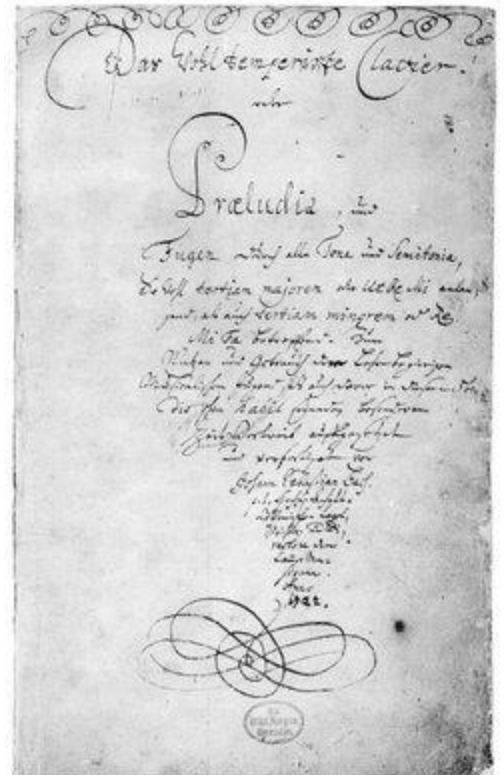 Das Wohltemperirte Clavier.
oder
Præludia, und
Fugen durch alle Tone und Semitonia,
So wohl tertiam majorem oder Ut Re Mi anlan-
gend, als auch tertiam minorem oder Re
Mi Fa betreffend. Zum
Nutzen und Gebrauch der Lehrbegierigen
Musicalischen Jugend, als auch derer in diesem
schon habil seyenden besonderem
Zeitvertreib auffgesetzet
und verfertiget von
Johann Sebastian Bach.
Anno
1722.